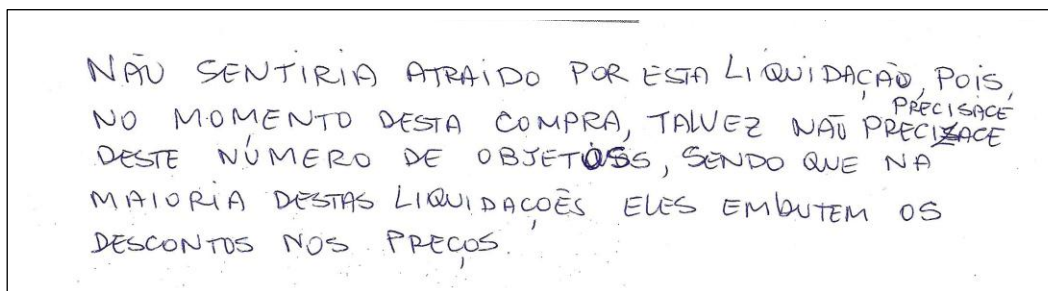 NÃO SENTIRIA ATRAIDO POR ESTA LIQUIDAÇÃO, POIS,
PRECISACE
NO MOMENTO DESTA COMPRA, TALVEZ NÃO PRECIZACE
DESTE NÚMERO DE OBJETOS, SENDO QUE NA
MAIORIA DESTAS LIQUIDAÇÕES ELES EMBUTEM OS
DESCONTOS NOS PREÇOS.